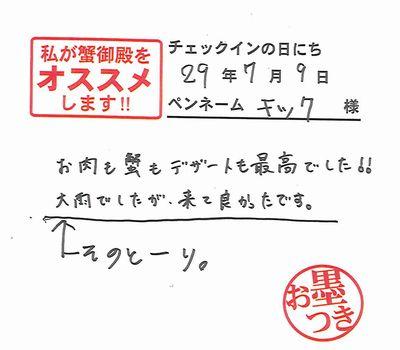 私が蟹御殿を
オススメ
します!!
チェックインの日にち
29年7月9日
ペンネーム キック 様
お肉も蟹もデザートも最高でした!!
大雨でしたが、来て良かたです。
そのとーり。
お墨つき